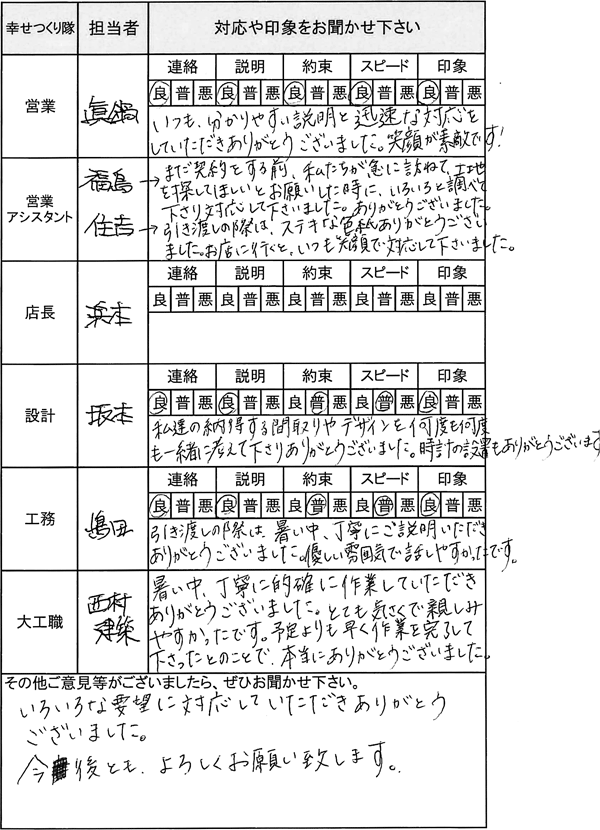 幸せつくり隊 担当者 対応や印象をお聞かせ下さい
営業 眞鍋
連絡 説明 約束 スピード 印象
良 普 悪 良 普 悪 良 普 悪 良 普 悪 良 普 悪
いつも、分かりやすい説明と迅速な対応を
していただきありがとうございました。笑顔が素敵です!
営業アシスタント
福島 → まだ契約をする前、私たちが急に訪ねて、土地
を探してほしいとお願いした時に、いろいろと調べて
下さり対応して下さいました。ありがとうございました。
住吉 → 引き渡しの際は、ステキな色紙ありがとうござい
ました。お店に行くと、いつも笑顔で対応して下さいました。
店長 浜本
連絡 説明 約束 スピード 印象
良 普 悪 良 普 悪 良 普 悪 良 普 悪 良 普 悪
設計 坂本
連絡 説明 約束 スピード 印象
良 普 悪 良 普 悪 良 普 悪 良 普 悪 良 普 悪
私達の納得する間取りやデザインを何度も何度
も一緒に考えて下さりありがとうございました。時計の設置もありがとうございます
工務 嶋田
連絡 説明 約束 スピード 印象
良 普 悪 良 普 悪 良 普 悪 良 普 悪 良 普 悪
引き渡しの際は、暑い中、丁寧にご説明いただき
ありがとうございました。優しい雰囲気で話しやすかったです。
大工職 西村
建築
暑い中、丁寧に的確に作業していただき
ありがとうございました。とても気さくで親しみ
やすかったです。予定よりも早く作業を完了して
下さったとのことで、本当にありがとうございました。
その他ご意見等がございましたら、ぜひお聞かせ下さい。
いろいろな要望に対応していただきありがとう
ございました。
今後とも、よろしくお願い致します。